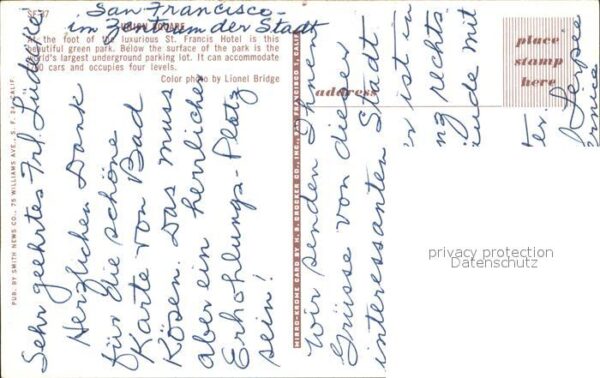 San Francisco-
im Zentrum der Stadt
SF-97
UNION SQUARE
At the foot of the luxurious St. Francis Hotel is this
beautiful green park. Below the surface of the park is the
world's largest underground parking lot. It can accommodate
cars and occupies four levels.
Color photo by Lionel Bridge
PUB. BY SMITH NEWS CO., 75 WILLIAMS AVE., S. F. 24, CALIF.
Sehr geehrtes Frl. Ludtke!
Herzlichen Dank
für die schöne
Karte von Bad
Kösen. Das muss
aber ein herrlicher
Erhohlungs-Platz
sein!
MIRRO-KROME CARD BY H. S. CROCKER CO., INC., SAN FRANCISCO 1, CALIF.
Wir senden Ihnen
Grüsse von dieser
interessanten Stadt
r ist
rechts
mit
address
place
stamp
here
privacy protection
Datenschutz